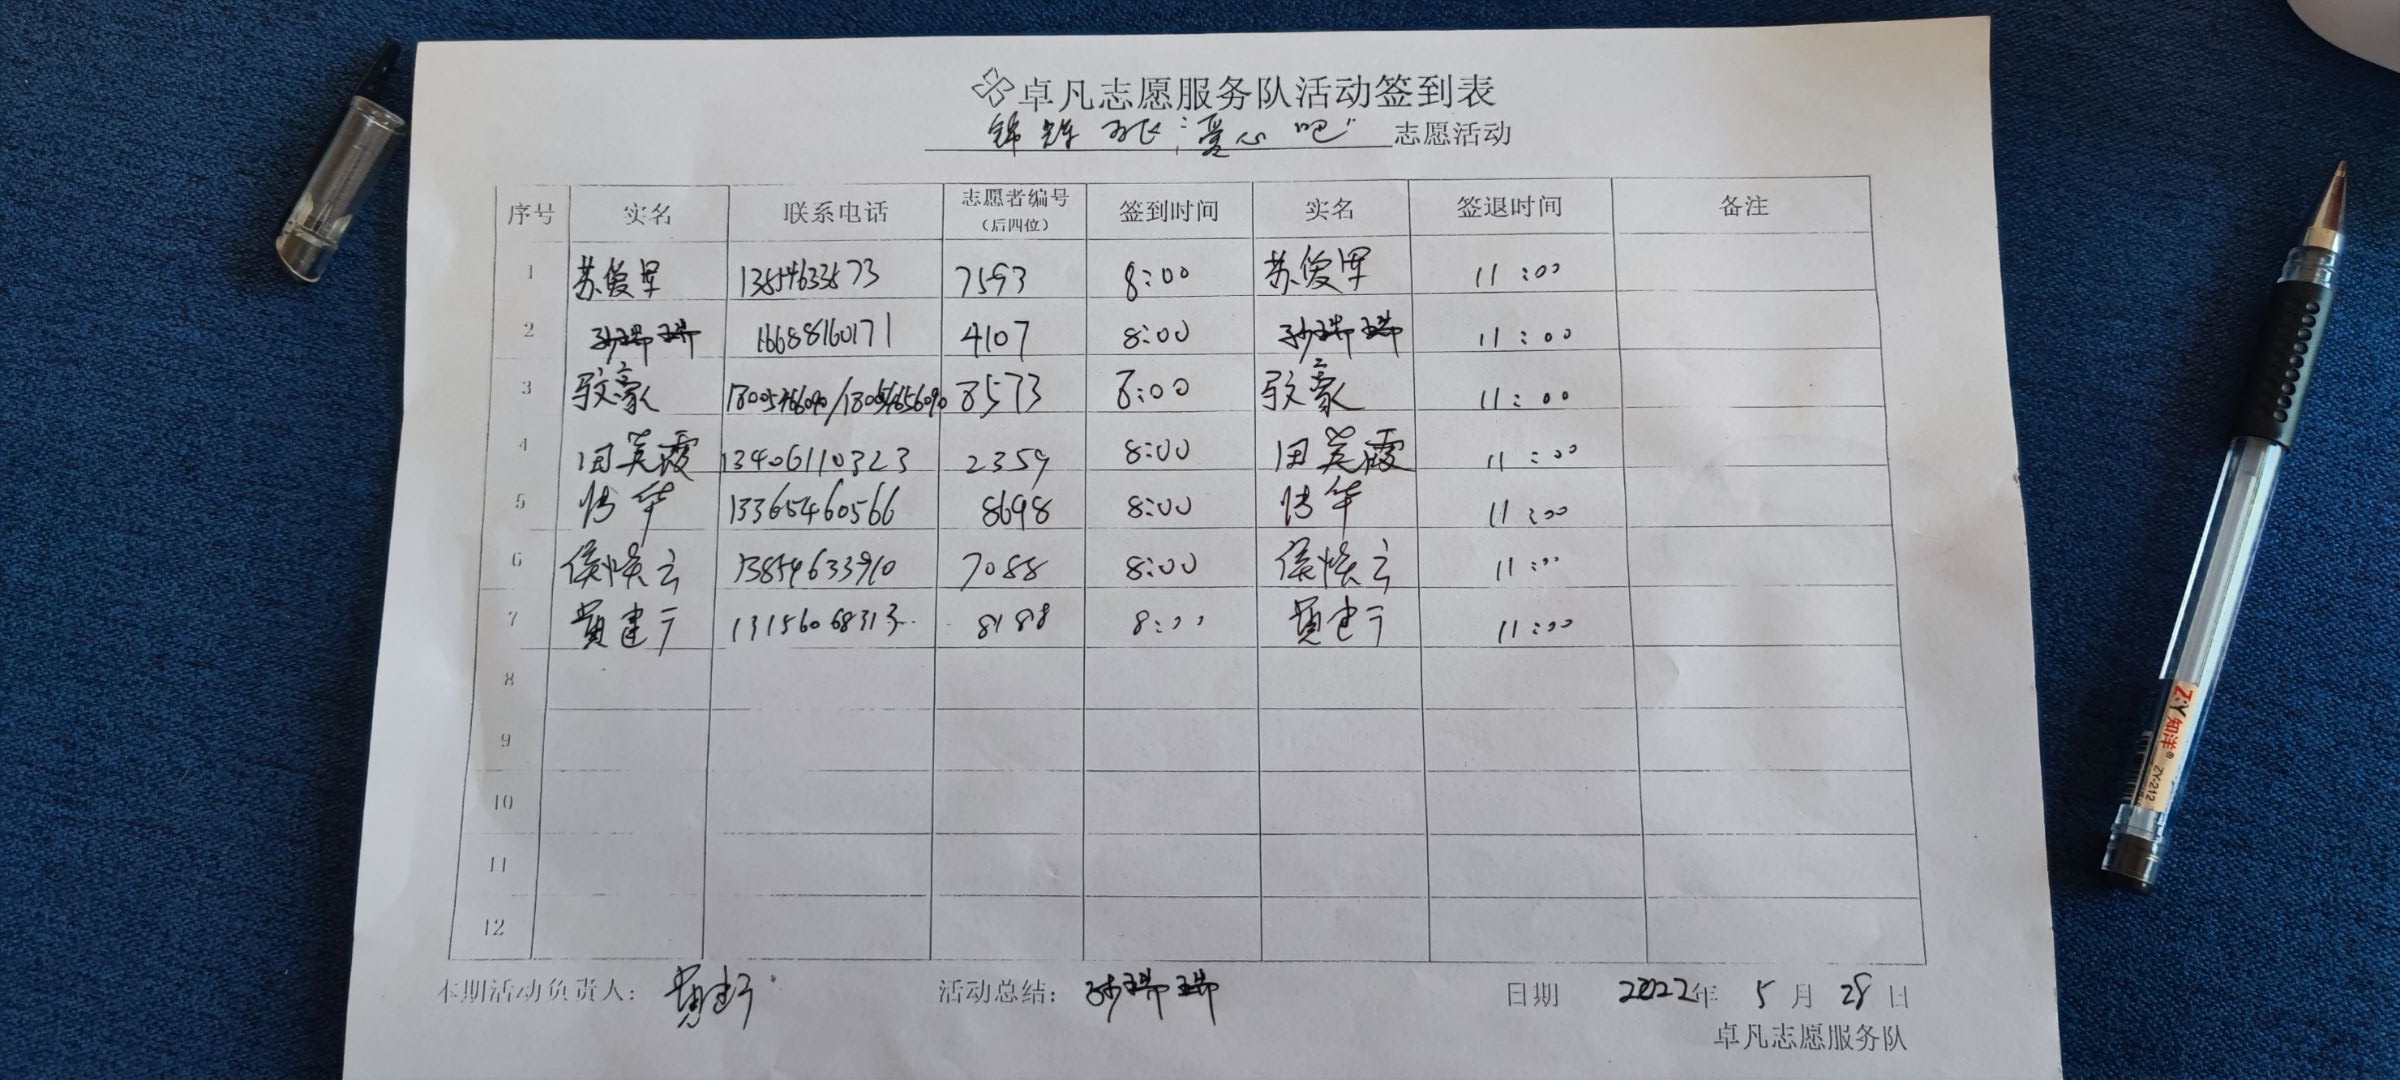 卓凡志愿服务队活动签到表
"爱心吧" 志愿活动
序号 实名 联系电话 志愿者编号（后四位） 签到时间 实名 签退时间 备注
1 苏俊军 13854633573 7593 8:00 苏俊军 11:00
2 孙瑞瑞 16688160171 4107 8:00 孙瑞瑞 11:00
3 8573 8:00 11:00
4 田英霞 13406110323 2359 8:00 田英霞 11:00
5 华 13365460566 8698 8:00 华 11:00
6 侯焕云 13854633910 7088 8:00 侯焕云 11:00
7 黄建 13156068313 8188 8:00 黄建 11:00
8
9
10
11
12
本期活动负责人： 黄建 活动总结： 孙瑞瑞 日期 2022年 5 月 28 日
卓凡志愿服务队
Z:Y 知洋® ZY-212